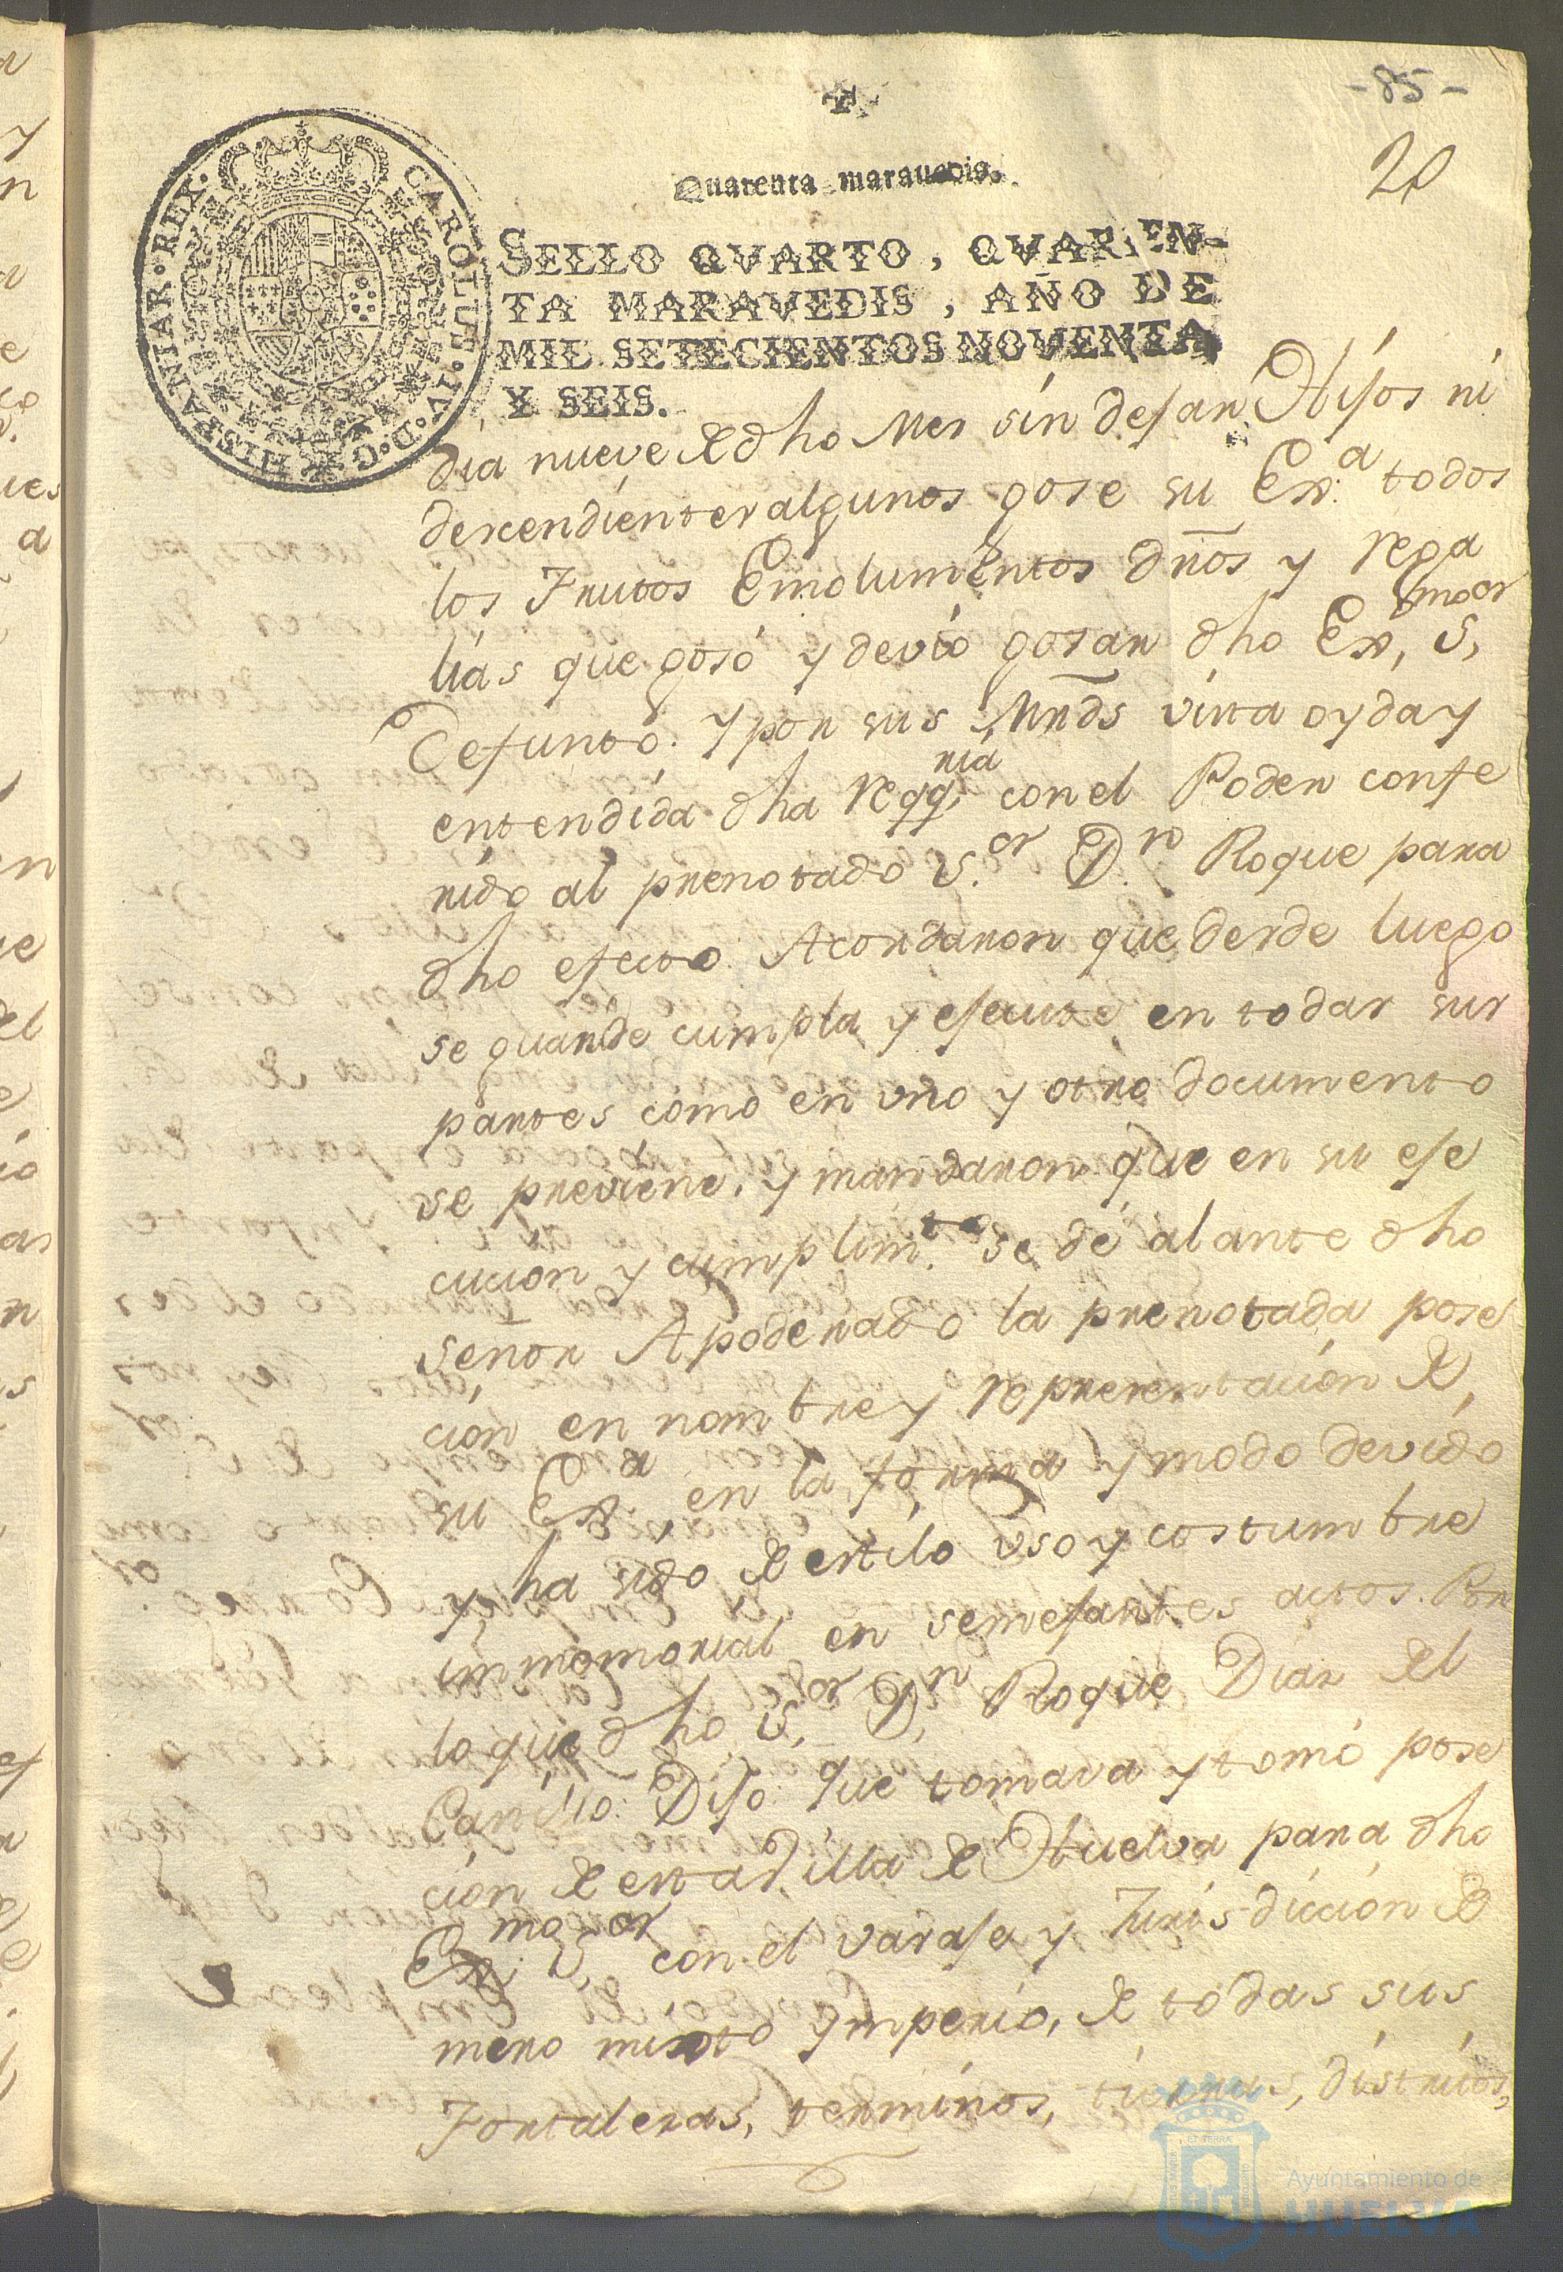 -85-
20
Quarenta maravedis.
SELLO QVARTO, QVAREN-
TA MARAVEDIS, AÑO DE
MIL SETECIENTOS NOVENTA
Y SEIS.
CAROLUS·IV·D·G·HISPANIAR·REX·
dia nueve de dho Mes sin dejar Hijos ni
descendientes algunos gose su Exa. todos
los Frutos Emolumentos dños y rega
lias que gosó y devió gosar dho Exmo. Sor.
Defunto. y por sus Mrds vista oyda y
entendida dha reqqria. con el Poder confe
rido al prenotado Sor. Dn. Roque para
dho efecto. Acordaron que desde luego
se guarde cumpla y ejecute en todas sus
partes como en uno y otro documento
se previene, y mandaron que en su eje
cucion y cumplimto. se dé al ante dho
señor Apoderado la prenotada pose
cion en nombre y representacion de
su Exa. en la forma y modo devido
y ha sido de estilo uso y costumbre
inmomorial en semejantes actos. Por
lo que dho Sor. Dn. Roque Diaz del
Carrillo: Dijo: Que tomava y tomó pose
cion de esta Villa de Huelva para dho
Exmo. Sor. con el vasaje y Juris-diccion de
mero mixto ymperio, de todas sus
Fortalezas, terminos, tierras, distritos,
Ayuntamiento de
HUELVA